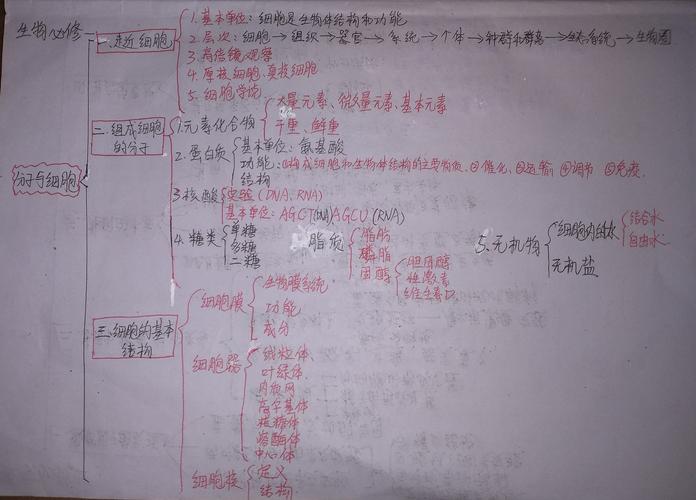 生物必修一
分子与细胞
一.走近细胞
1.基本单位:细胞是生物体结构和功能
2.层次:细胞→组织→器官→系统→个体→种群和群落→生态系统→生物圈
3.高倍镜观察
4.原核细胞、真核细胞
5.细胞学说
二.组成细胞的分子
1.元素化合物
大量元素、微量元素、基本元素
干重、鲜重
2.蛋白质
基本单位:氨基酸
功能:①构成细胞和生物体结构的主要物质.②催化.③运输.④调节.⑤免疫.
结构
3.核酸
实验(DNA、RNA)
基本单位:AGCT(DNA)AGCU(RNA)
4.糖类
单糖
多糖
二糖
脂质
脂肪
磷脂
固醇
胆固醇
性激素
维生素D
5.无机物
细胞内的水
结合水
自由水
无机盐
三.细胞的基本结构
细胞膜
生物膜系统
功能
成分
细胞器
线粒体、
叶绿体、
内质网
高尔基体
核糖体
溶酶体
中心体
细胞核
定义
结构